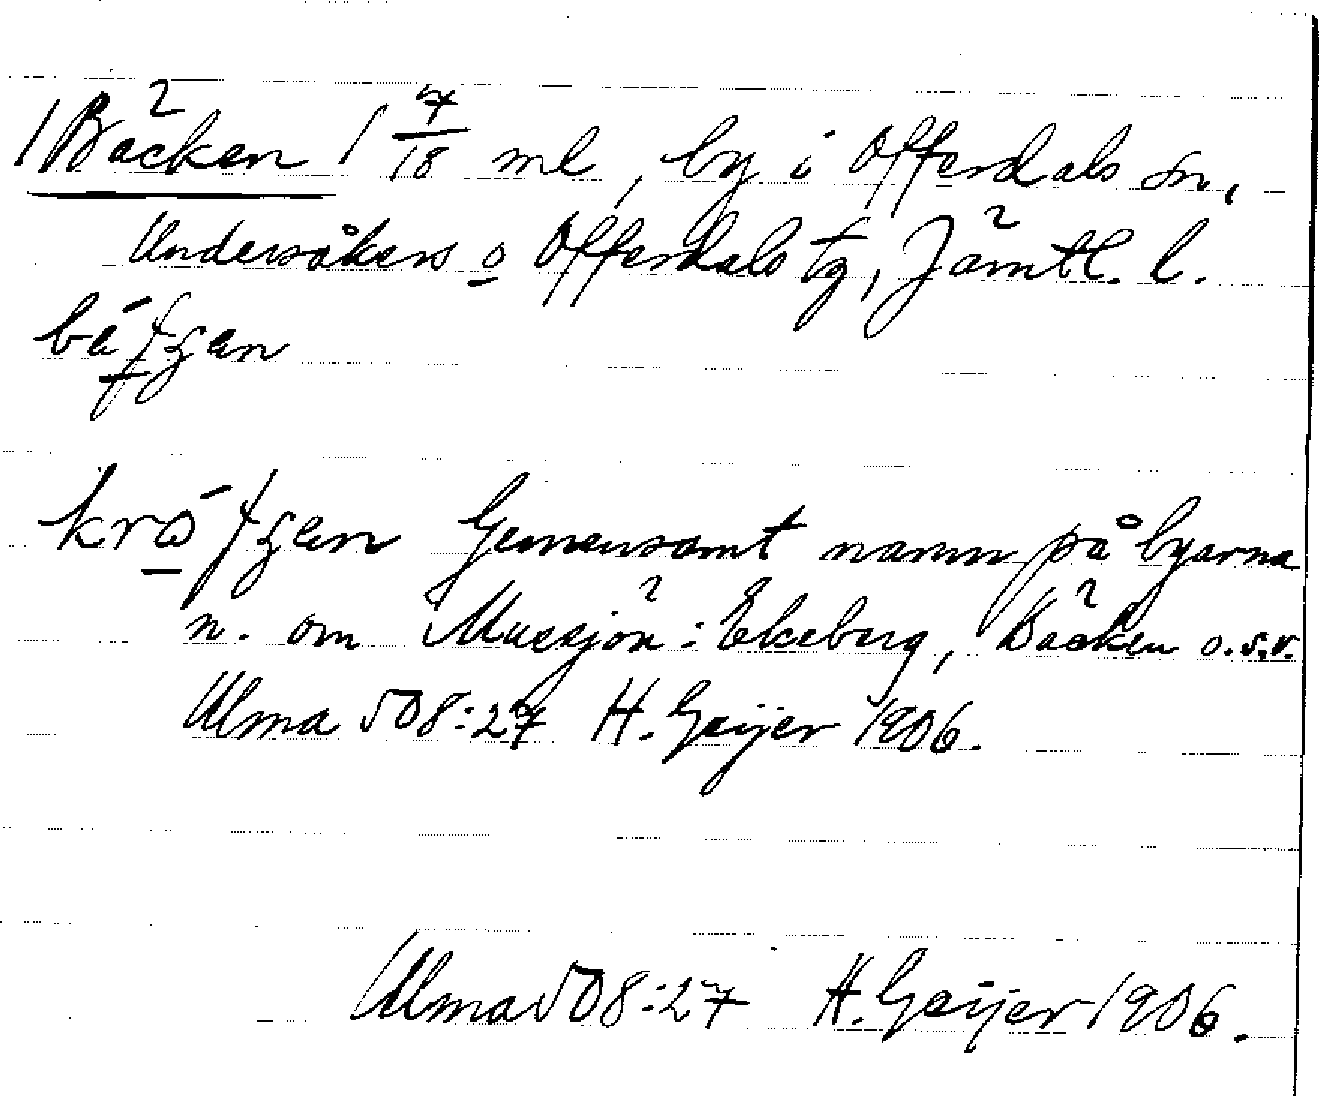 /Bäcken/ 7/18 ml, by i Offerdals sn,
Undersåkers o Offerdals tg, Jämtl. l.
Gemensamt namn på byarna
n. om Mussjön: Ekeberg, Bäcken o.s.v.
Ulma 508:27 H. Geijer 1906.
Ulma 508:27 H. Geijer 1906.